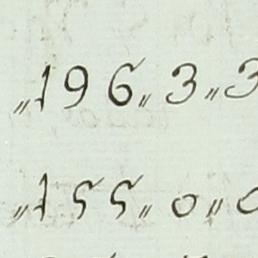 „196„3„3
„155„0„0